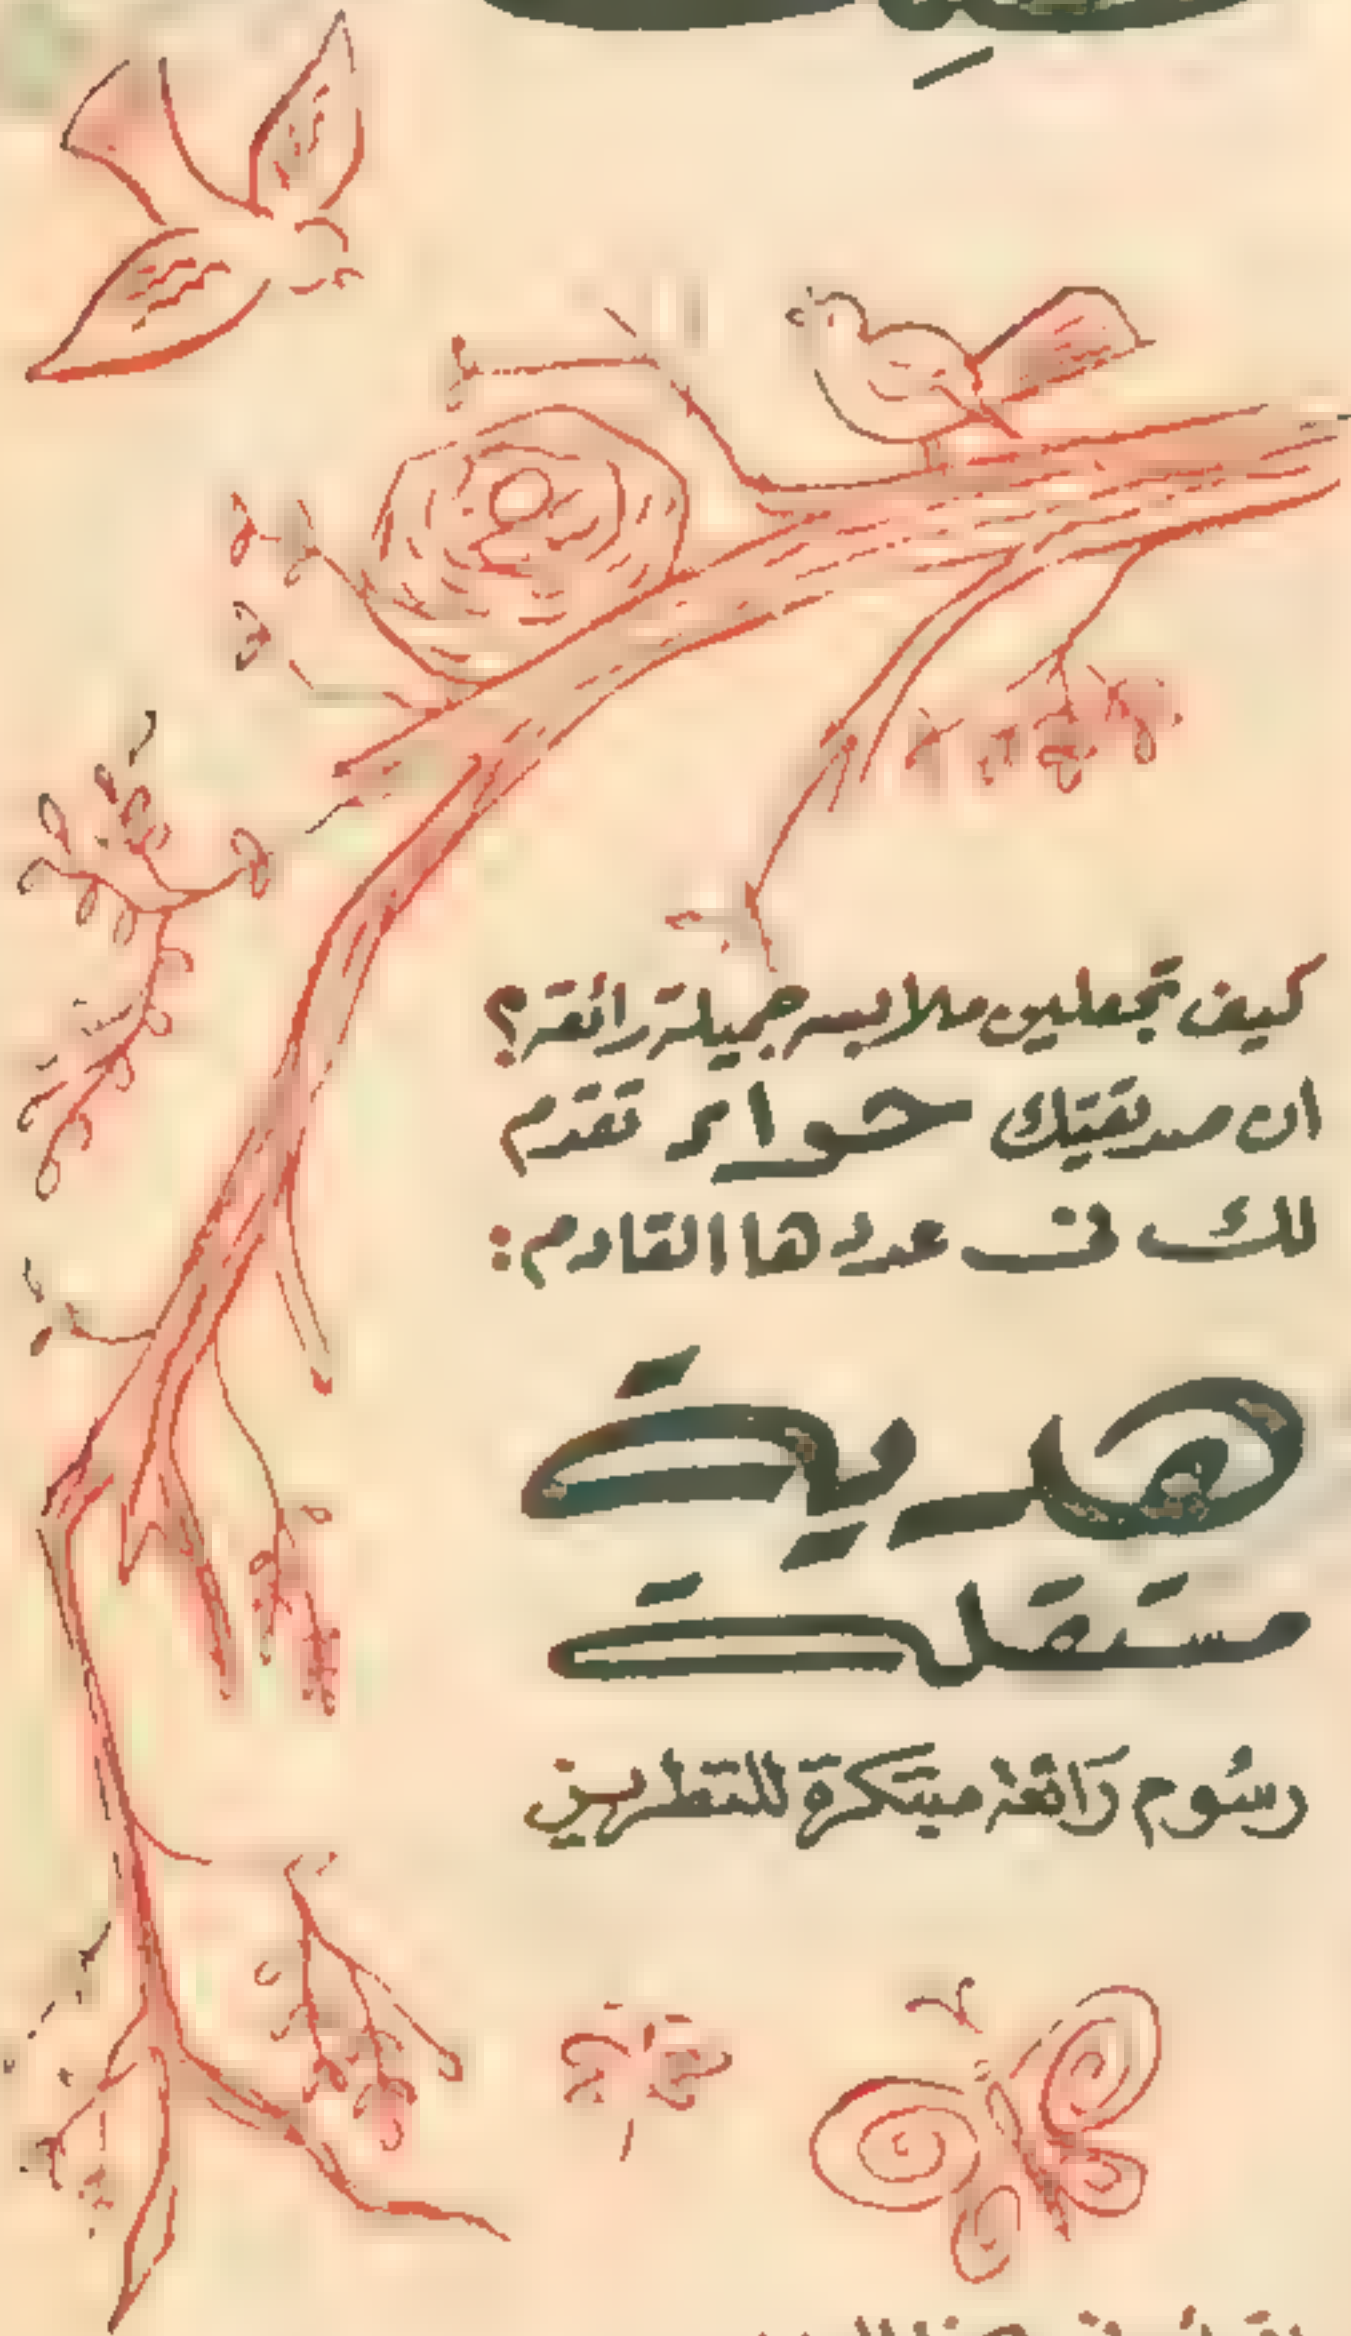 كيف تجعلين ملابسه جميلة رائعة؟
ان صديقتك حواء تقدم
لك فى عددها القادم:
هدية
مستقلة
رسُوم رَائعة مبتكرة للتطريز